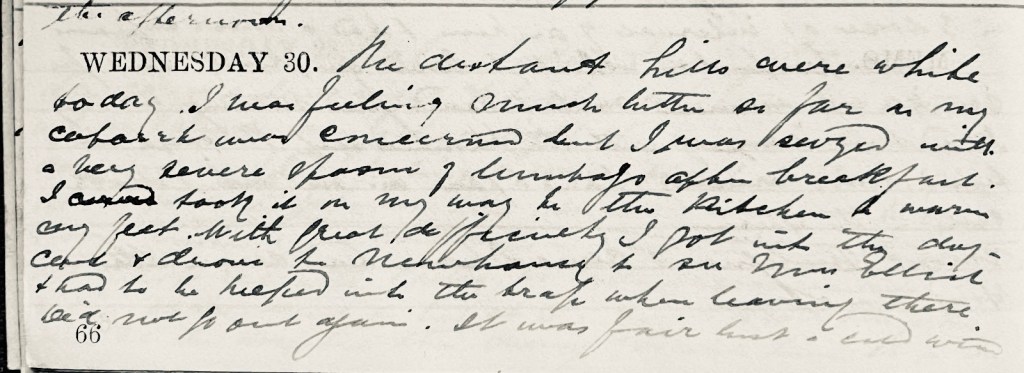 the afternoon.
WEDNESDAY 30. The distant hills were white
today. I was feeling much better so far as my
catarrh was concerned but I was seized with
a very severe spasm of lumbago after breakfast.
I took it on my way to the kitchen to warm
my feet. With great difficulty I got into the dog-
cart & drove to Newhouse to see Mrs Elliot
& had to be helped into the trap when leaving there
did not go out again. It was fair but a cold wind
66